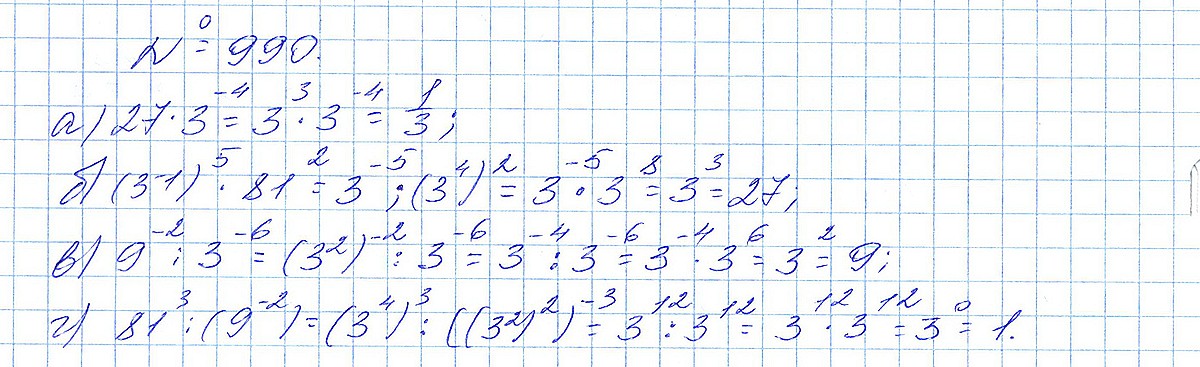 № 990.
а) 27 · 3⁻⁴ = 3³ · 3⁻⁴ = 1/3;
б) (3-1)⁵ · 81² = 3⁻⁵ ; (3⁴)² = 3⁻⁵ · 3⁸ = 3³ = 27;
в) 9⁻² : 3⁻⁶ = (3²)⁻² : 3⁻⁶ = 3⁻⁴ : 3⁻⁶ = 3⁻⁴ · 3⁶ = 3² = 9;
г) 81³ : (9⁻²) = (3⁴)³ : ((3²)²)⁻³ = 3¹² : 3¹² = 3¹² · 3¹² = 3⁰ = 1.